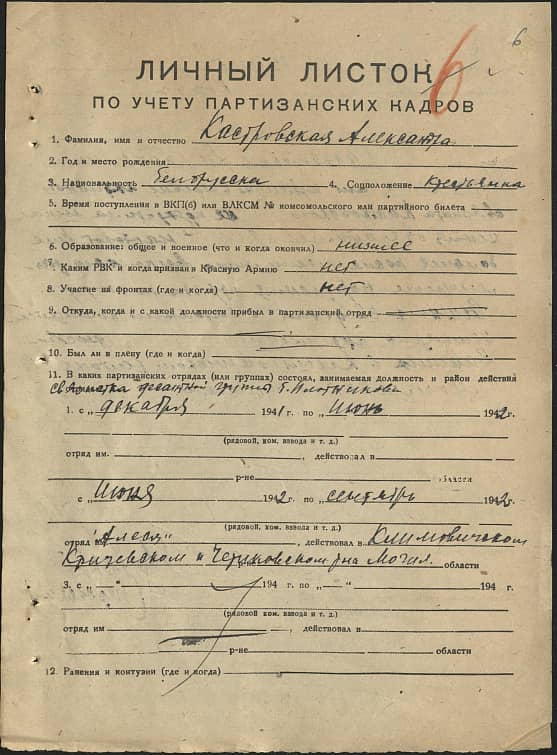 6
6
ЛИЧНЫЙ ЛИСТОК
ПО УЧЕТУ ПАРТИЗАНСКИХ КАДРОВ
1. Фамилия, имя и отчество Кастровская Александра
2. Год и место рождения
3. Национальность белорусска 4. Соцположение крестьянка
5. Время поступления в ВКП(б) или ВЛКСМ № комсомольского или партийного билета
6. Образование: общее и военное (что и когда окончил) низшее
7. Каким РВК и когда призван в Красную Армию нет
8. Участие на фронтах (где и когда) нет
9. Откуда, когда и с какой должности прибыл в партизанский отряд
10. Был ли в плену (где и когда)
11. В каких партизанских отрядах (или группах) состоял, занимаемая должность и район действия
десантной группы т. Плотникова
1. с „декабря 1941г. по „июнь 1942г.
(рядовой, ком. взвода и т. д.)
отряд им. , действовал в
р-не области
с „июня 1942г. по „сентябрь 1942г.
(рядовой, ком. взвода и т. д.)
отряд „Алеся" , действовал в Климовичском
Кричевском и Чериковском р-на Могил. области
3. с „ " 194 г. по „ " 194 г.
(рядовой, ком. взвода и т. д.)
отряд им , действовал в
р-не области
12. Ранения и контузии (где и когда)